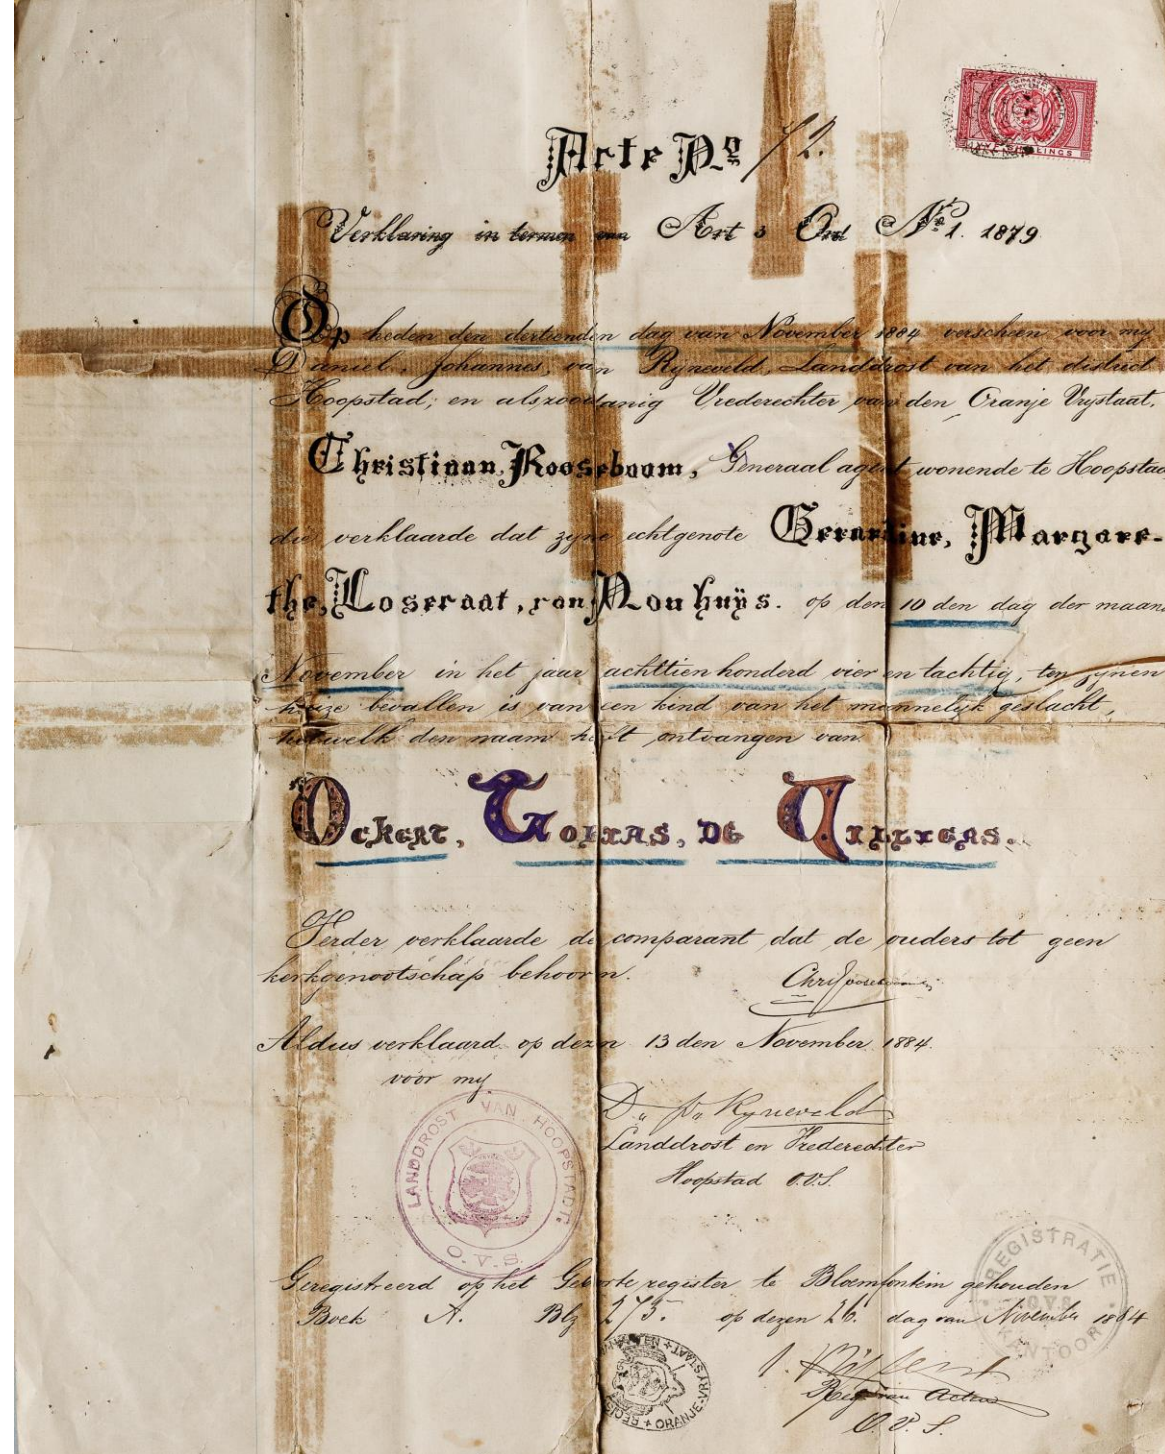 Acte No 72.
Verklaring in termen van Art 3 Ord No 1. 1879
Op heden den dertienden dag van November 1884 verscheen voor my
Daniel, Johannes, van Ryneveld, Landdrost van het district
Hoopstad; en alszoodanig Vrederechter van den Oranje Vrystaat,
Christiaan, Rooseboom, Generaal agent wonende te Hoopstad
die verklaarde dat zyne echtgenote Gerardine, Margare-
the, Loseraat, van Nouhuÿs. op den 10 den dag der maand
November in het jaar achttien honderd vier en tachtig, ten zynen
huize bevallen is van een kind van het mannelyk geslacht,
hetwelk den naam heeft ontvangen van
Ockert, Tobias, de Villiers.
Verder verklaarde de comparant dat de ouders tot geen
kerkgenootschap behooren.
Chr Rooseboom
Aldus verklaard op dezen 13 den November 1884.
voor my
D. J. v. Ryneveld
Landdrost en Vrederechter
Hoopstad O.V.S.
LANDDROST VAN HOOPSTADT
O.V.S.
REGISTRATIE
O.V.S.
KANTOOR
Geregistreerd op het Geboorte register te Bloemfontein gehouden
Boek A. Blz 275. op dezen 26. dag van November 1884
ORANJE-VRYSTAAT
Reg van Acten
O.V.S.